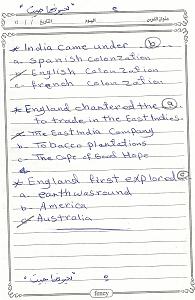 عنوان الدرس اليوم التاريخ / / ١٤
* India came under ___ (b)
a- spanish colonzation
b- English colonzation
c- french colonzation
* England chantered the (a)
to trade in the East Indies.
a- The East India Company
b- Tobacco plantations
c- The Cape of Good Hope
* England first explored (c)
a- earth was round
b- America
c- Australia
fancy